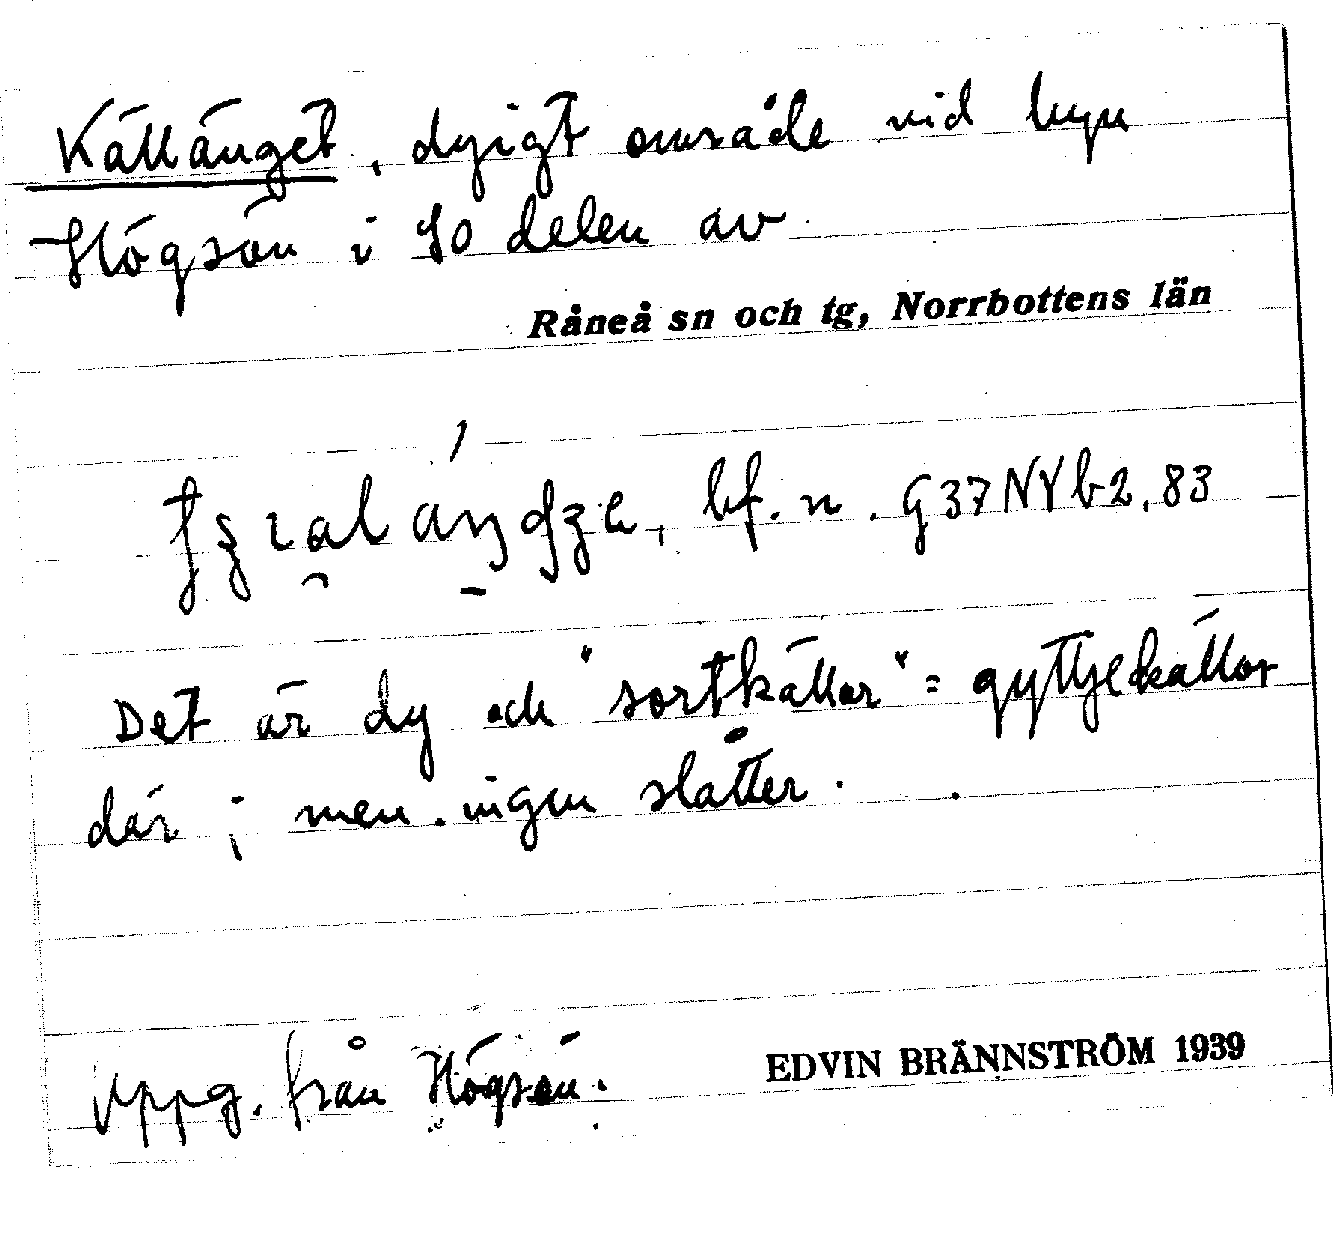 Källänget, dyigt område vid byn
Högsön i SO delen av
Råneå sn och tg, Norrbottens län
bf. n. G37NYb2,83
Det är dy och "sortkällor" = gyttjekällor
där; men ingen slåtter.
Uppg. från Högsön.
EDVIN BRÄNNSTRÖM 1939